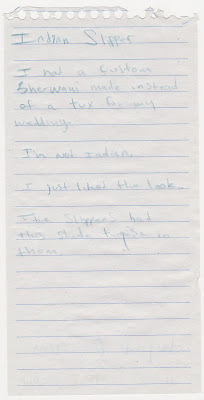 Indian Slipper
I had a custom
Sherwani made instead
of a tux for my
wedding.
I'm not Indian.
I just liked the look.
The slippers had
this
them